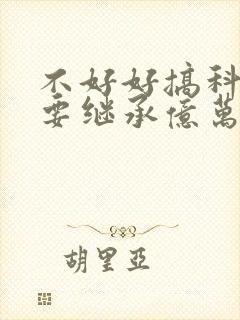 不好好搞科
要继承億萬
胡里亞